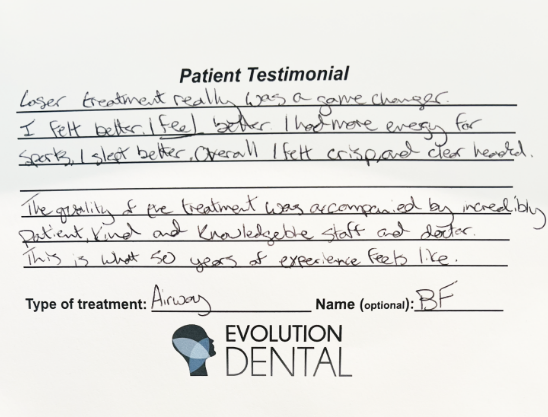 Patient Testimonial
Laser treatment really was a game changer.
I felt better. I feel better. I had more energy for
sports, I slept better. Overall I felt crisp, and clear headed.
The quality of the treatment was accompanied by incredibly
patient, kind and knowledgeable staff and doctor.
This is what 50 years of experience feels like.
Type of treatment: Airway Name (optional): BF
EVOLUTION
DENTAL